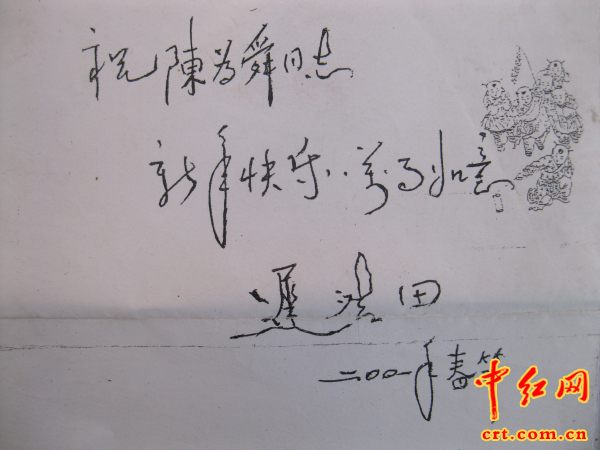 祝陳为舜同志
新年快乐!萬事如意
遲浩田
二00一年春節
中红网
crt.com.cn